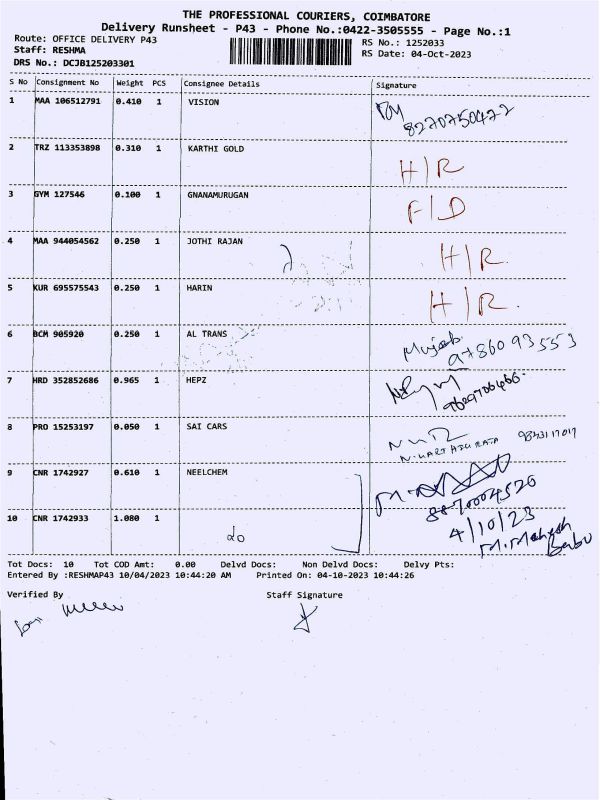 THE PROFESSIONAL COURIERS, COIMBATORE
Delivery Runsheet - P43 - Phone No.:0422-3505555 - Page No.:1
Route: OFFICE DELIVERY P43
RS No.: 1252033
Staff: RESHMA
RS Date: 04-Oct-2023
DRS No.: DCJB125203301
S No Consignment No Weight PCS Consignee Details Signature
1 MAA 106512791 0.410 1 VISION
8270750472
2 TRZ 113353898 0.310 1 KARTHI GOLD
H/R
3 GYM 127546 0.100 1 GNANAMURUGAN
F/D
4 MAA 944054562 0.250 1 JOTHI RAJAN
H/R
5 KUR 695575543 0.250 1 HARIN
H/R.
6 BCM 905920 0.250 1 AL TRANS
Mujeeb
9786093553
7 HRD 352852686 0.965 1 HEPZ
8 PRO 15253197 0.050 1 SAI CARS
9 CNR 1742927 0.610 1 NEELCHEM
8870004520
10 CNR 1742933 1.080 1 do
4/10/23
M. Mahesh
Babu
Tot Docs: 10 Tot COD Amt: 0.00 Delvd Docs: Non Delvd Docs: Delvy Pts:
Entered By :RESHMAP43 10/04/2023 10:44:20 AM Printed On: 04-10-2023 10:44:26
Verified By Staff Signature